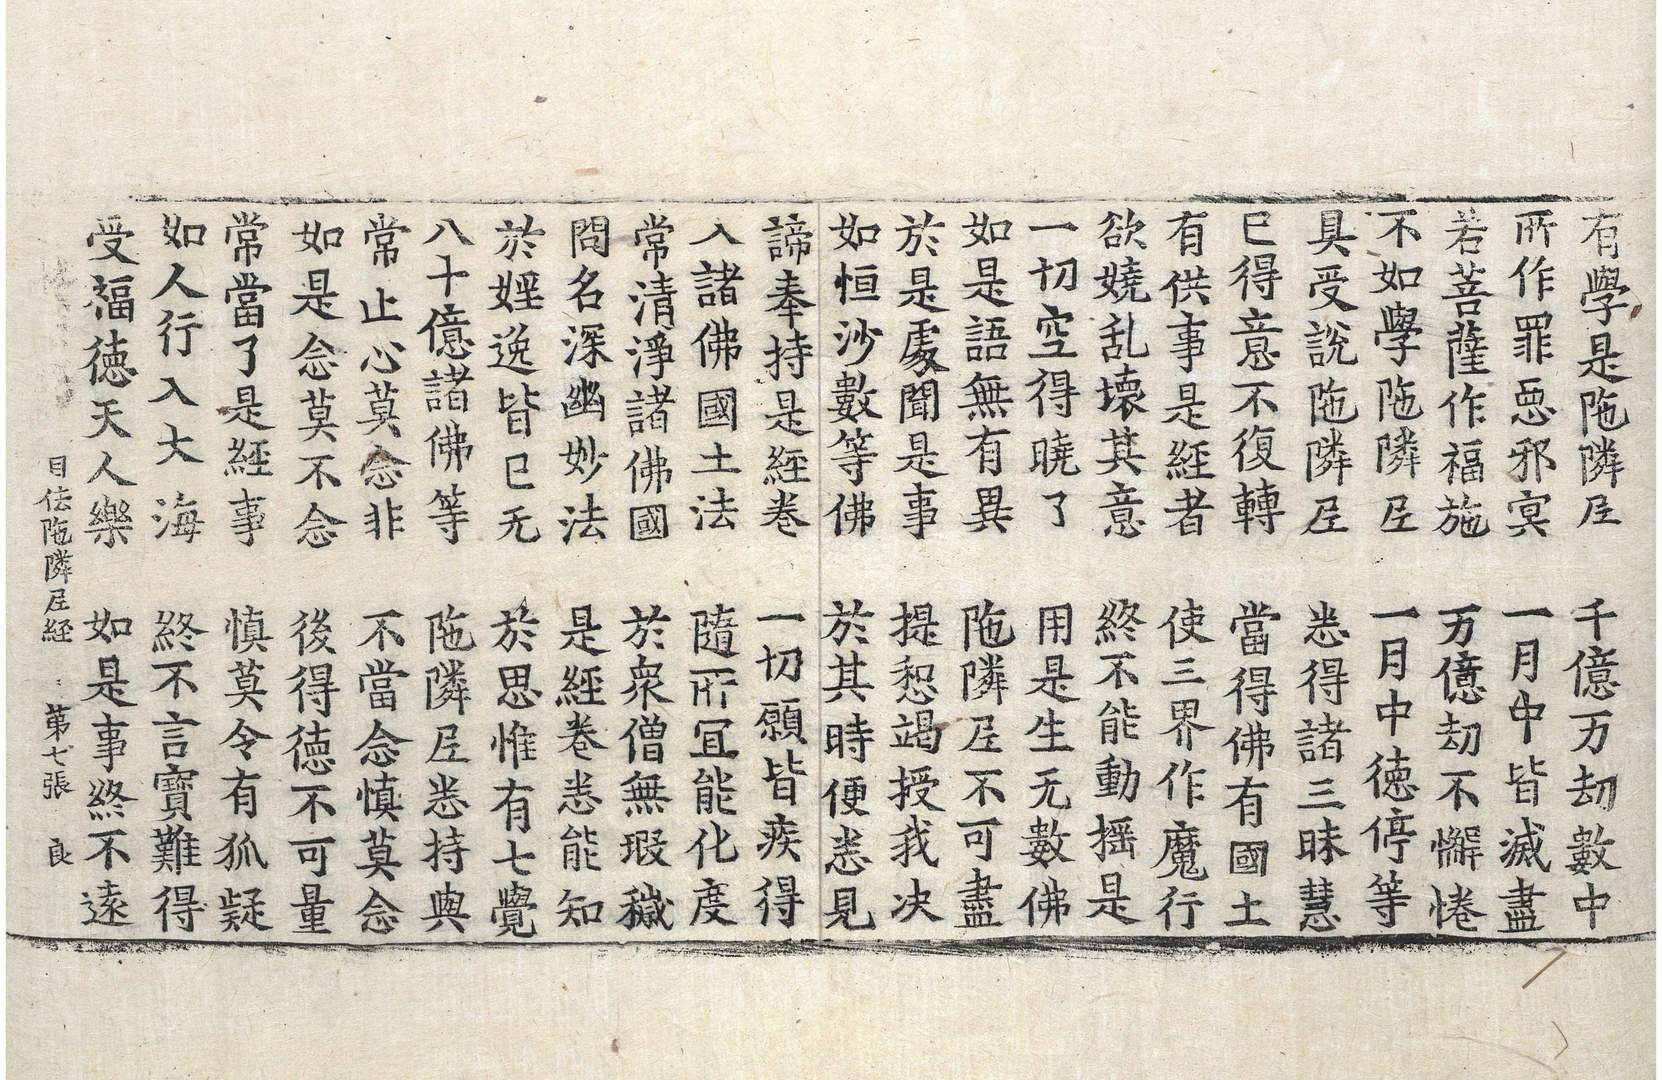 有學是陁隣𡰱 千億万劫數中
所作罪惡邪㝠 一月中皆滅盡
若菩薩作福施 万億劫不懈惓
不如學陁隣𡰱 一月中徳停等
具受說陁隣𡰱 悉得諸三昧慧
已得意不復轉 當得佛有國土
有供事是經者 使三界作魔行
欲嬈乱壞其意 終不能動揺是
一切空得曉了 用是生无數佛
如是語無有異 陁隣𡰱不可盡
於是䖏聞是事 提惒竭授我决
如恒沙數等佛 於其時便悉見
諦奉持是經卷 一切願皆疾得
入諸佛國土法 隨所冝能化度
常清淨諸佛國 於衆僧無瑕穢
問名深幽妙法 是經卷悉能知
於婬逸皆已无 於思惟有七覺
八十億諸佛等 陁隣𡰱悉持與
常止心莫念非 不當念慎莫念
如是念莫不念 後得徳不可量
常當了是經事 慎莫令有狐疑
如人行入大海 終不言寶難得
受福徳天人樂 如是事終不遠
目佉陁隣𡰱経 第七張 良